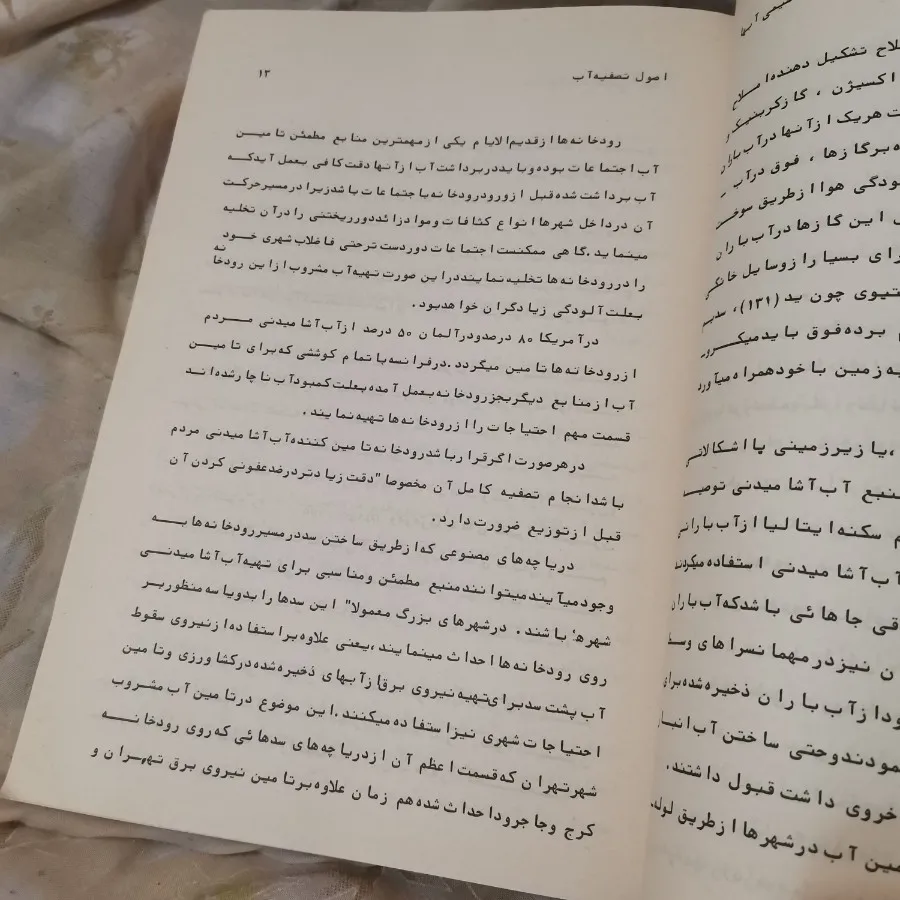 اصول تصفیه آب
۱۳
رودخانه ها از قدیم الایام یکی از مهمترین منابع مطمئن تامین
آب اجتماعات بوده و باید در برداشت آب از آنها دقت کافی بعمل آید که
آب برداشت شده قبل از ورود رودخانه با جتماعات باشد زیرا در مسیر حرکت
آن در داخل شهرها انواع کثافات و مواد زائد دور ریختنی را در آن تخلیه
مینماید . گاهی ممکنست اجتماعات دوردست تر حتی فاضلاب شهری خود
را در رودخانه ها تخلیه نمایند در این صورت تهیه آب مشروب از این رودخانه
بعلت آلودگی زیاد گران خواهد بود .
در آمریکا ۸۰ درصد و در آلمان ۵۰ درصد از آب آشامیدنی مردم
از رودخانه ها تامین میگردد . در فرانسه با تمام کوششی که برای تامین
آب از منابع دیگر بجز رودخانه بعمل آمده بعلت کمبود آب ناچار شده اند
قسمت مهم احتیاجات را از رودخانه ها تهیه نمایند .
در هر صورت اگر قرار باشد رودخانه تامین کننده آب آشامیدنی مردم
باشد انجام تصفیه کامل آن مخصوصا" دقت زیادتر در ضد عفونی کردن آن
قبل از توزیع ضرورت دارد .
دریاچه های مصنوعی که از طریق ساختن سد در مسیر رودخانه ها به
وجود میآیند میتوانند منبع مطمئن و مناسبی برای تهیه آب آشامیدنی
شهرها باشند . در شهرهای بزرگ معمولا" این سدها را بدو یا سه منظور بر
روی رودخانه ها احداث مینمایند ، یعنی علاوه بر استفاده از نیروی سقوط
آب پشت سد برای تهیه نیروی برق از آبهای ذخیره شده در کشاورزی و تامین
احتیاجات شهری نیز استفاده میکنند . این موضوع در تامین آب مشروب
شهر تهران که قسمت اعظم آن از دریاچه های سدهائی که روی رودخانه
کرج و جاجرود احداث شده هم زمان علاوه بر تامین نیروی برق تهران و
تشکیل دهنده املاح
اکسیژن ، گاز کربنیک و
هریک از آنها در آب باران
برگازها ، فوق در آب
هوا از طریق سوخت
این گازها در آب باران
بسیار از وسایل خانگی
چون ید (۱۳۱) ، سدیم
برده فوق باید میکرو
زمین با خود همراه میآورد
، یا زیرزمینی با اشکالاتی
آب آشامیدنی توصیه
سکنه ایتالیا از آب بارانی
آب آشامیدنی استفاده میکردند
جاهائی باشد که آب باران
نیز در مهمانسراهای
از آب باران ذخیره شده برای
و حتی ساختن آب انبار
داشت قبول داشتند .
آب در شهرها از طریق لوله